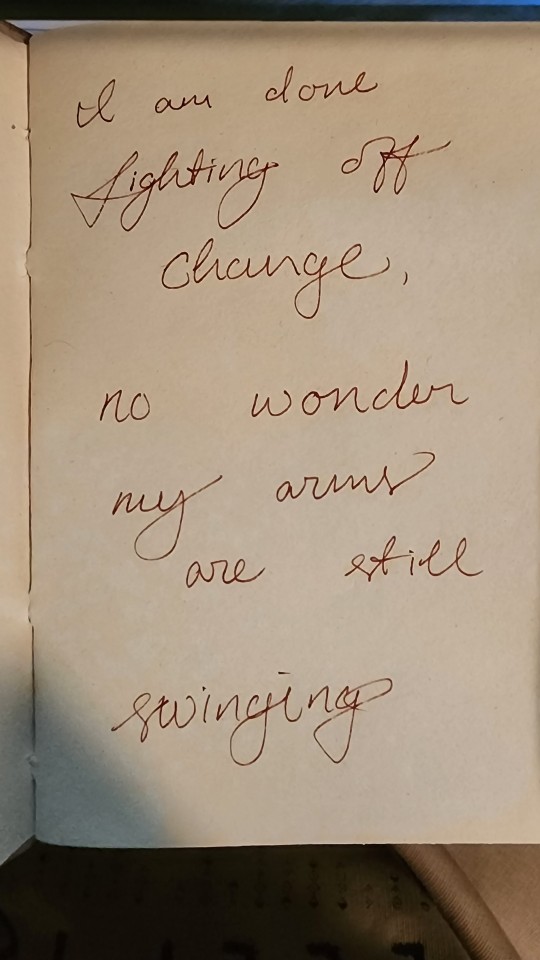 I am done
fighting off
change,
no wonder
my arms
are still
swinging